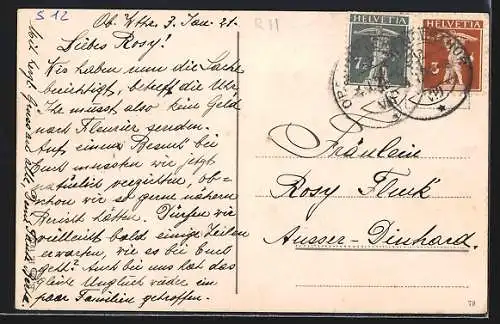 S 12
R 11
Ob. Wtha. 3. Jan. 21.
Liebes Rosy!
Wir haben nun die Sache
berichtigt, betreff die Uhr.
Ihr müsst also kein Geld
nach Fleurier senden.
Auf einen Besuch bei
Euch müssten wir jetzt
natürlich verzichten, ob-
schon wir so gerne nähern
Bericht hätten. Dürfen wir
vielleicht bald einige Zeilen
erwarten, wie es bei Euch
geht? Auch bei uns hat das
gleiche Unglück wieder ein
paar Familien getroffen.
Mit herzl. Grüssen
HELVETIA
7½
HELVETIA
3
Fräulein
Rosy Flück
Ausser-Dinhard.
79